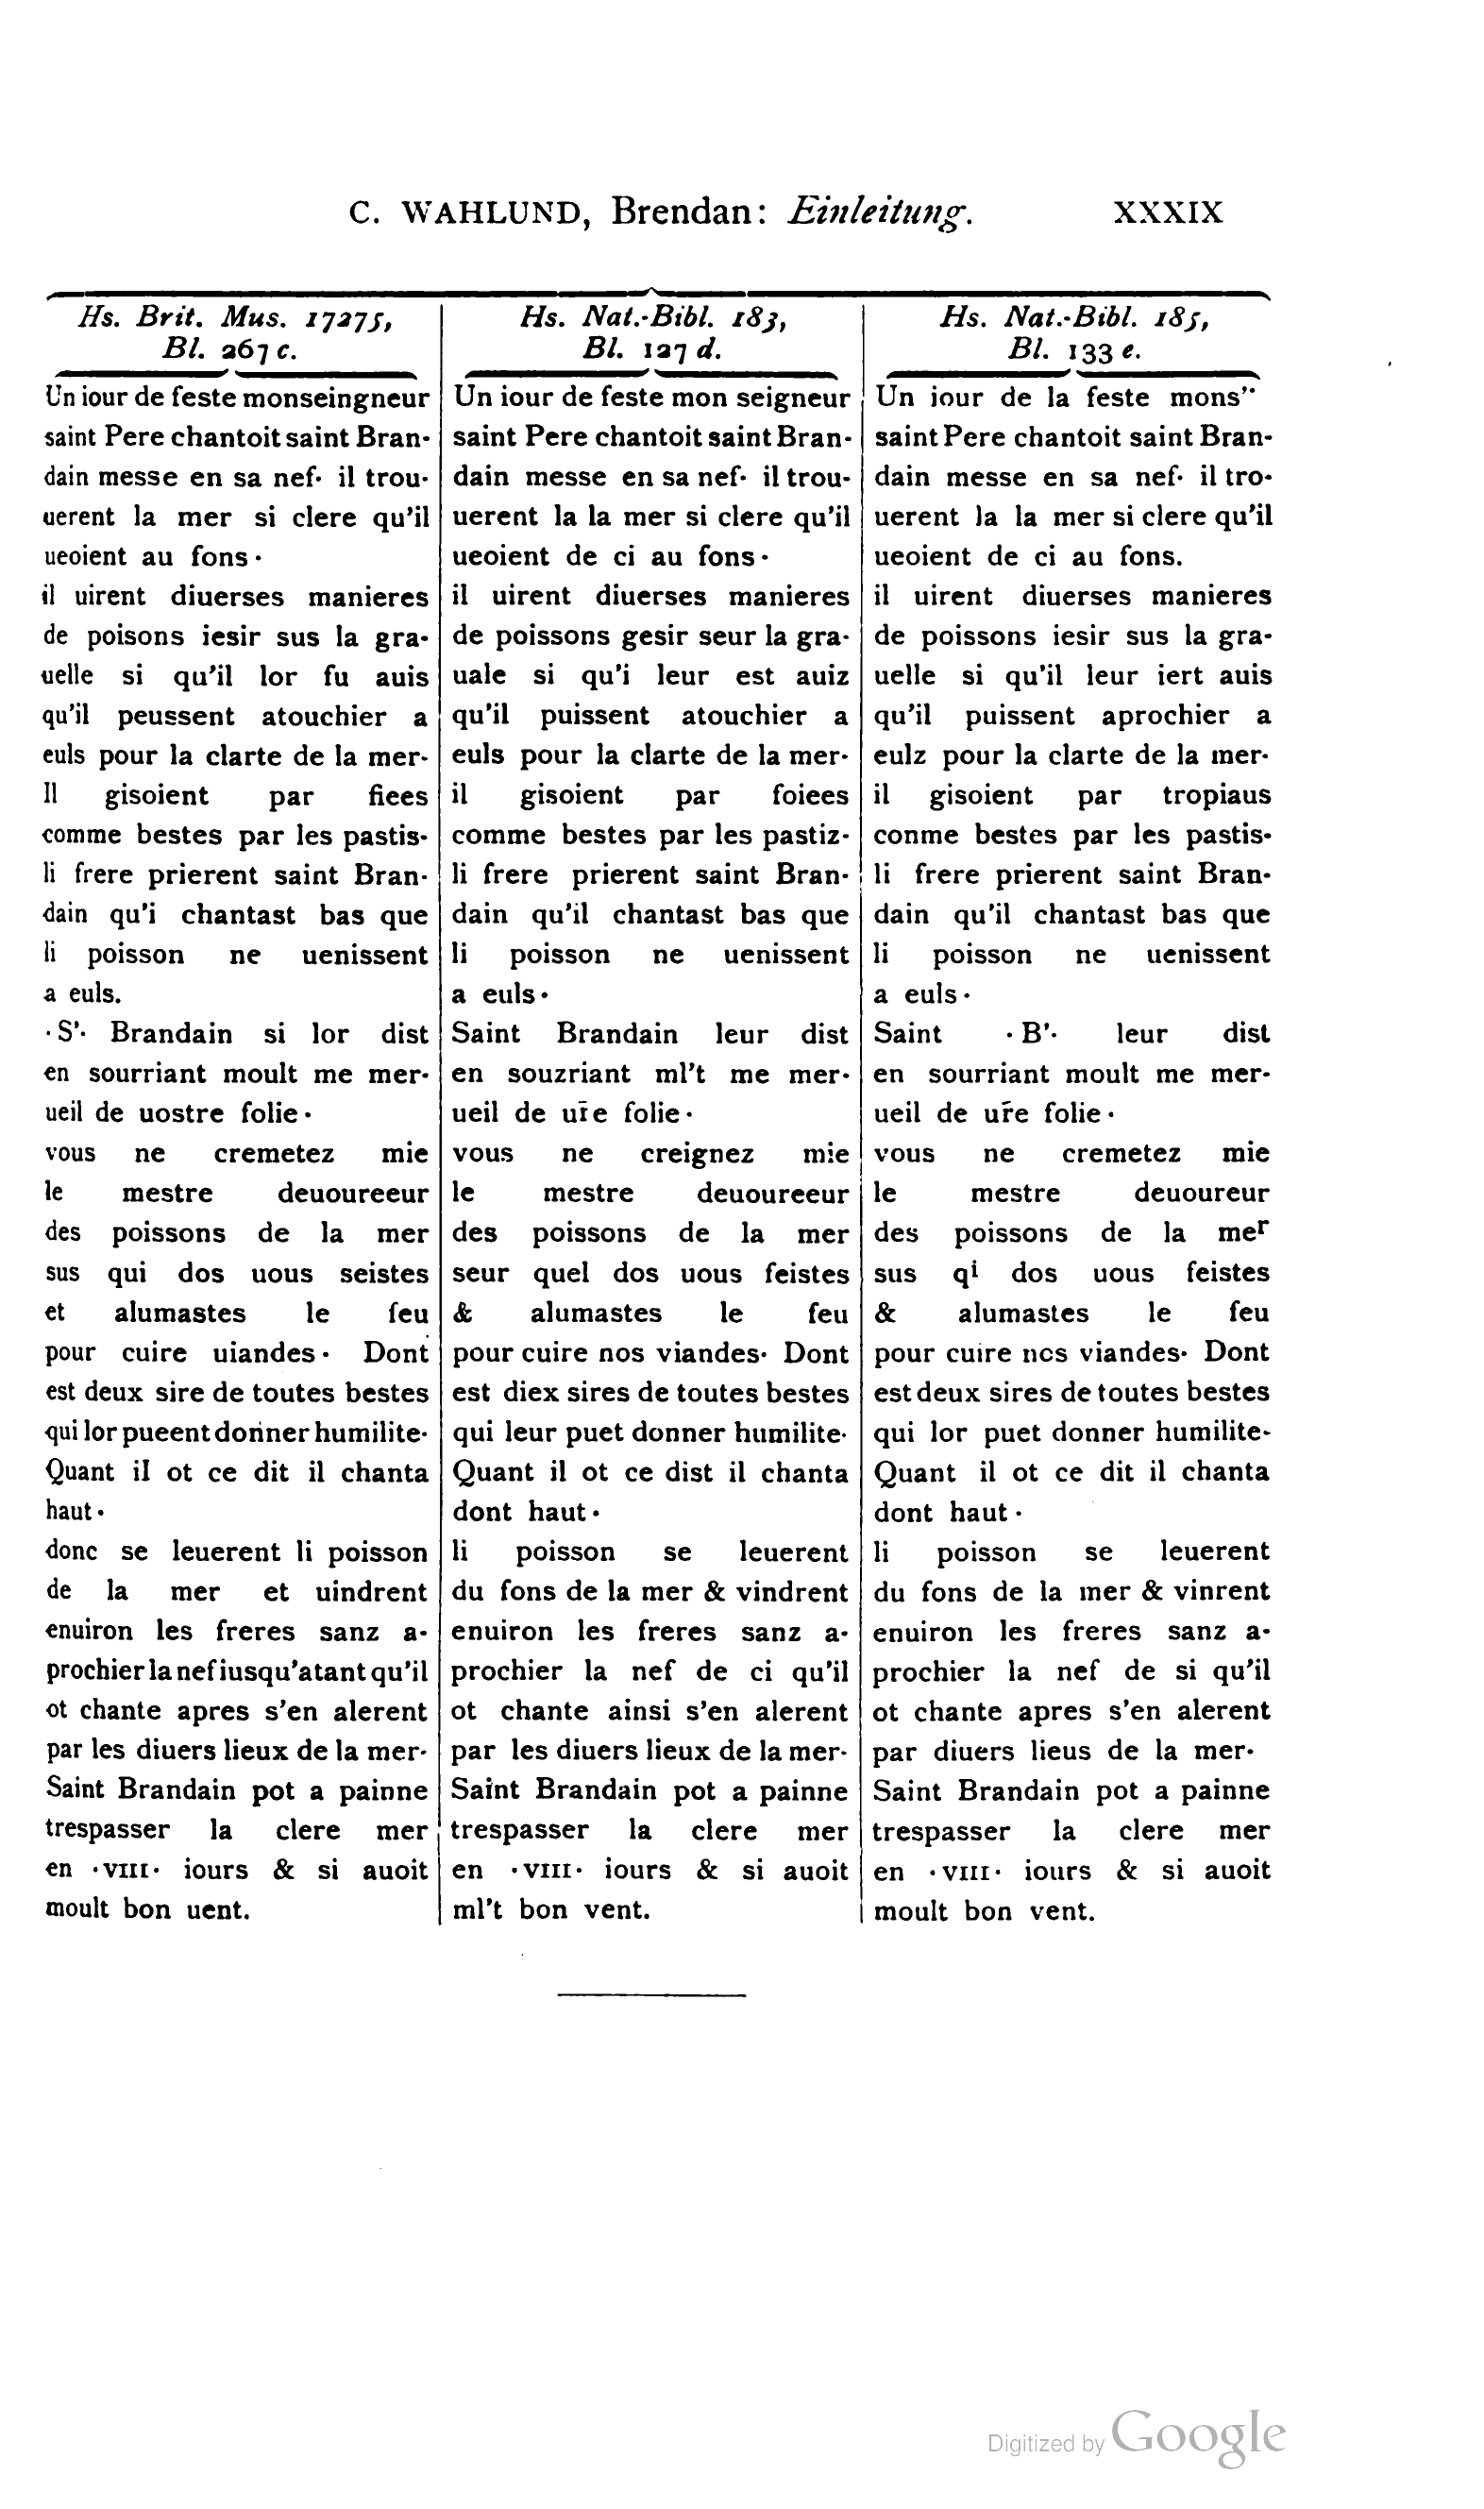 C. WAHLUND, Brendan: Einleitung. XXXIX
Hs. Brit. Mus. 17275,
Bl. 267 c.
Un iour de feste monseingneur
saint Pere chantoit saint Bran-
dain messe en sa nef· il trou-
uerent la mer si clere qu'il
ueoient au fons ·
il uirent diuerses manieres
de poisons iesir sus la gra-
uelle si qu'il lor fu auis
qu'il peussent atouchier a
euls pour la clarte de la mer·
Il gisoient par fiees
comme bestes par les pastis·
li frere prierent saint Bran-
dain qu'i chantast bas que
li poisson ne uenissent
a euls.
· S'· Brandain si lor dist
en sourriant moult me mer-
ueil de uostre folie ·
vous ne cremetez mie
le mestre deuoureeur
des poissons de la mer
sus qui dos uous seistes
et alumastes le feu
pour cuire uiandes · Dont
est deux sire de toutes bestes
qui lor pueent donner humilite·
Quant il ot ce dit il chanta
haut ·
donc se leuerent li poisson
de la mer et uindrent
enuiron les freres sanz a-
prochier la nef iusqu'atant qu'il
ot chante apres s'en alerent
par les diuers lieux de la mer·
Saint Brandain pot a painne
trespasser la clere mer
en ·VIII· iours & si auoit
moult bon uent.
Hs. Nat.-Bibl. 183,
Bl. 127 d.
Un iour de feste mon seigneur
saint Pere chantoit saint Bran-
dain messe en sa nef· il trou-
uerent la la mer si clere qu'il
ueoient de ci au fons ·
il uirent diuerses manieres
de poissons gesir seur la gra-
uale si qu'i leur est auiz
qu'il puissent atouchier a
euls pour la clarte de la mer·
il gisoient par foiees
comme bestes par les pastiz·
li frere prierent saint Bran-
dain qu'il chantast bas que
li poisson ne uenissent
a euls ·
Saint Brandain leur dist
en souzriant ml't me mer-
ueil de ur̄e folie ·
vous ne creignez mie
le mestre deuoureeur
des poissons de la mer
seur quel dos uous feistes
& alumastes le feu
pour cuire nos viandes· Dont
est diex sires de toutes bestes
qui leur puet donner humilite·
Quant il ot ce dist il chanta
dont haut ·
li poisson se leuerent
du fons de la mer & vindrent
enuiron les freres sanz a-
prochier la nef de ci qu'il
ot chante ainsi s'en alerent
par les diuers lieux de la mer·
Saint Brandain pot a painne
trespasser la clere mer
en ·VIII· iours & si auoit
ml't bon vent.
Hs. Nat.-Bibl. 185,
Bl. 133 e.
Un iour de la feste mons'·
saint Pere chantoit saint Bran-
dain messe en sa nef· il tro-
uerent la la mer si clere qu'il
ueoient de ci au fons.
il uirent diuerses manieres
de poissons iesir sus la gra-
uelle si qu'il leur iert auis
qu'il puissent aprochier a
eulz pour la clarte de la mer·
il gisoient par tropiaus
conme bestes par les pastis·
li frere prierent saint Bran-
dain qu'il chantast bas que
li poisson ne uenissent
a euls ·
Saint · B'· leur dist
en sourriant moult me mer-
ueil de ur̄e folie ·
vous ne cremetez mie
le mestre deuoureur
des poissons de la meʳ
sus qⁱ dos uous feistes
& alumastes le feu
pour cuire nos viandes· Dont
est deux sires de toutes bestes
qui lor puet donner humilite·
Quant il ot ce dit il chanta
dont haut ·
li poisson se leuerent
du fons de la mer & vinrent
enuiron les freres sanz a-
prochier la nef de si qu'il
ot chante apres s'en alerent
par diuers lieus de la mer·
Saint Brandain pot a painne
trespasser la clere mer
en ·VIII· iours & si auoit
moult bon vent.
Digitized by Google